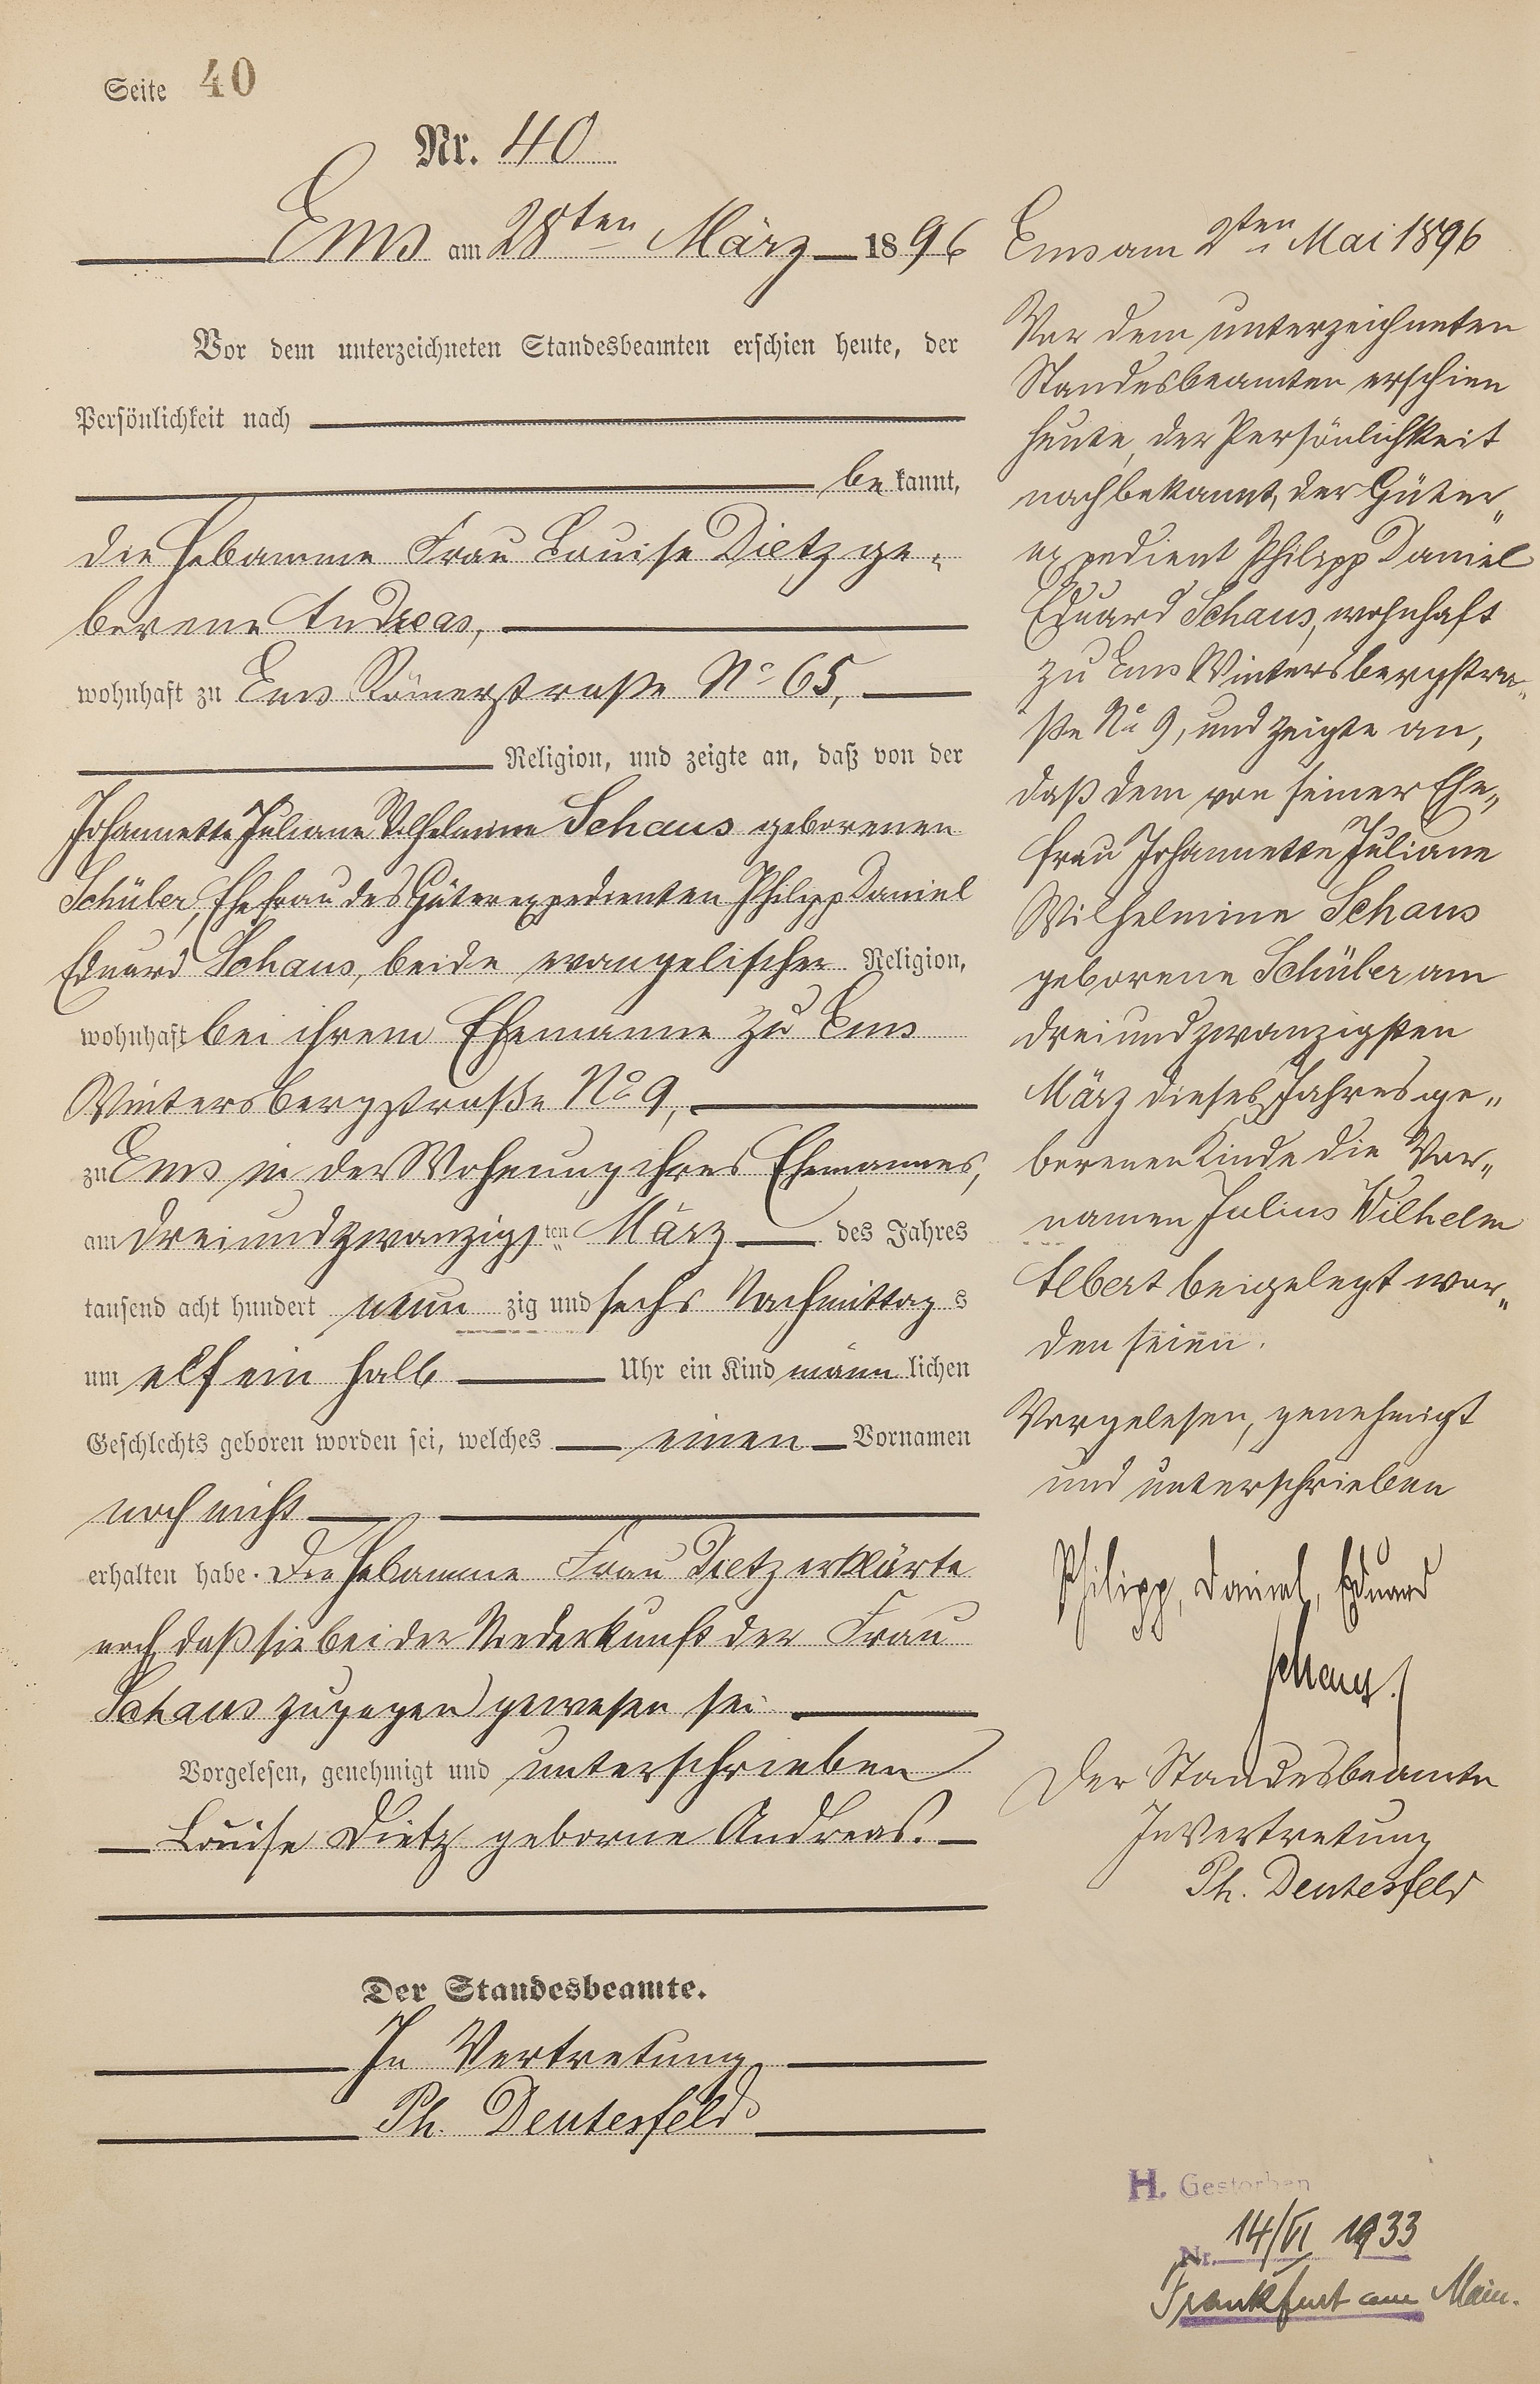 Seite 40
Nr. 40
Ems am 28ten März 1896
Vor dem unterzeichneten Standesbeamten erschien heute, der
Persönlichkeit nach
be kannt,
die Hebamme Frau Louise Dietz ge-
borene Andreas,
wohnhaft zu Ems Römerstraße No 65,
Religion, und zeigte an, daß von der
Johannette Juliane Wilhelmine Schaus geborenen
Schüler, Ehefrau des Güterexpedienten Philipp Daniel
Eduard Schaus, beide evangelischer Religion,
wohnhaft bei ihrem Ehemanne zu Ems
Wintersbergstraße No 9,
zu Ems in der Wohnung ihres Ehemannes,
am dreiundzwanzigsten März des Jahres
tausend acht hundert neun zig und sechs Nachmittag s
um elf ein halb Uhr ein Kind männ lichen
Geschlechts geboren worden sei, welches einen Vornamen
noch nicht
erhalten habe. Die Hebamme Frau Dietz erklärte
noch, daß sie bei der Niederkunft der Frau
Schaus zugegen gewesen sei
Vorgelesen, genehmigt und unterschrieben
Louise Dietz geborne Andreas.
Der Standesbeamte.
In Vertretung
Ph. Deutesfeld
Ems am 2ten Mai 1896
Vor dem unterzeichneten
Standesbeamten erschien
heute, der Persönlichkeit
nach bekannt, der Güter„
expedient Philipp Daniel
Eduard Schaus, wohnhaft
zu Ems Wintersbergstra„
ße No 9, und zeigte an,
daß dem von seiner Ehe„
frau Johannette Juliane
Wilhelmine Schaus
geborene Schüler am
dreiundzwanzigsten
März dieses Jahres ge„
borenen Kinde die Vor„
namen Julius Wilhelm
Albert beigelegt wor„
den seien.
Vorgelesen, genehmigt
und unterschrieben
Philipp, Daniel, Eduard
Schaus.
Der Standesbeamte
In Vertretung
Ph. Deutesfeld
H. Gestorben
Nr. 14/VI 1933
Frankfurt am Main.